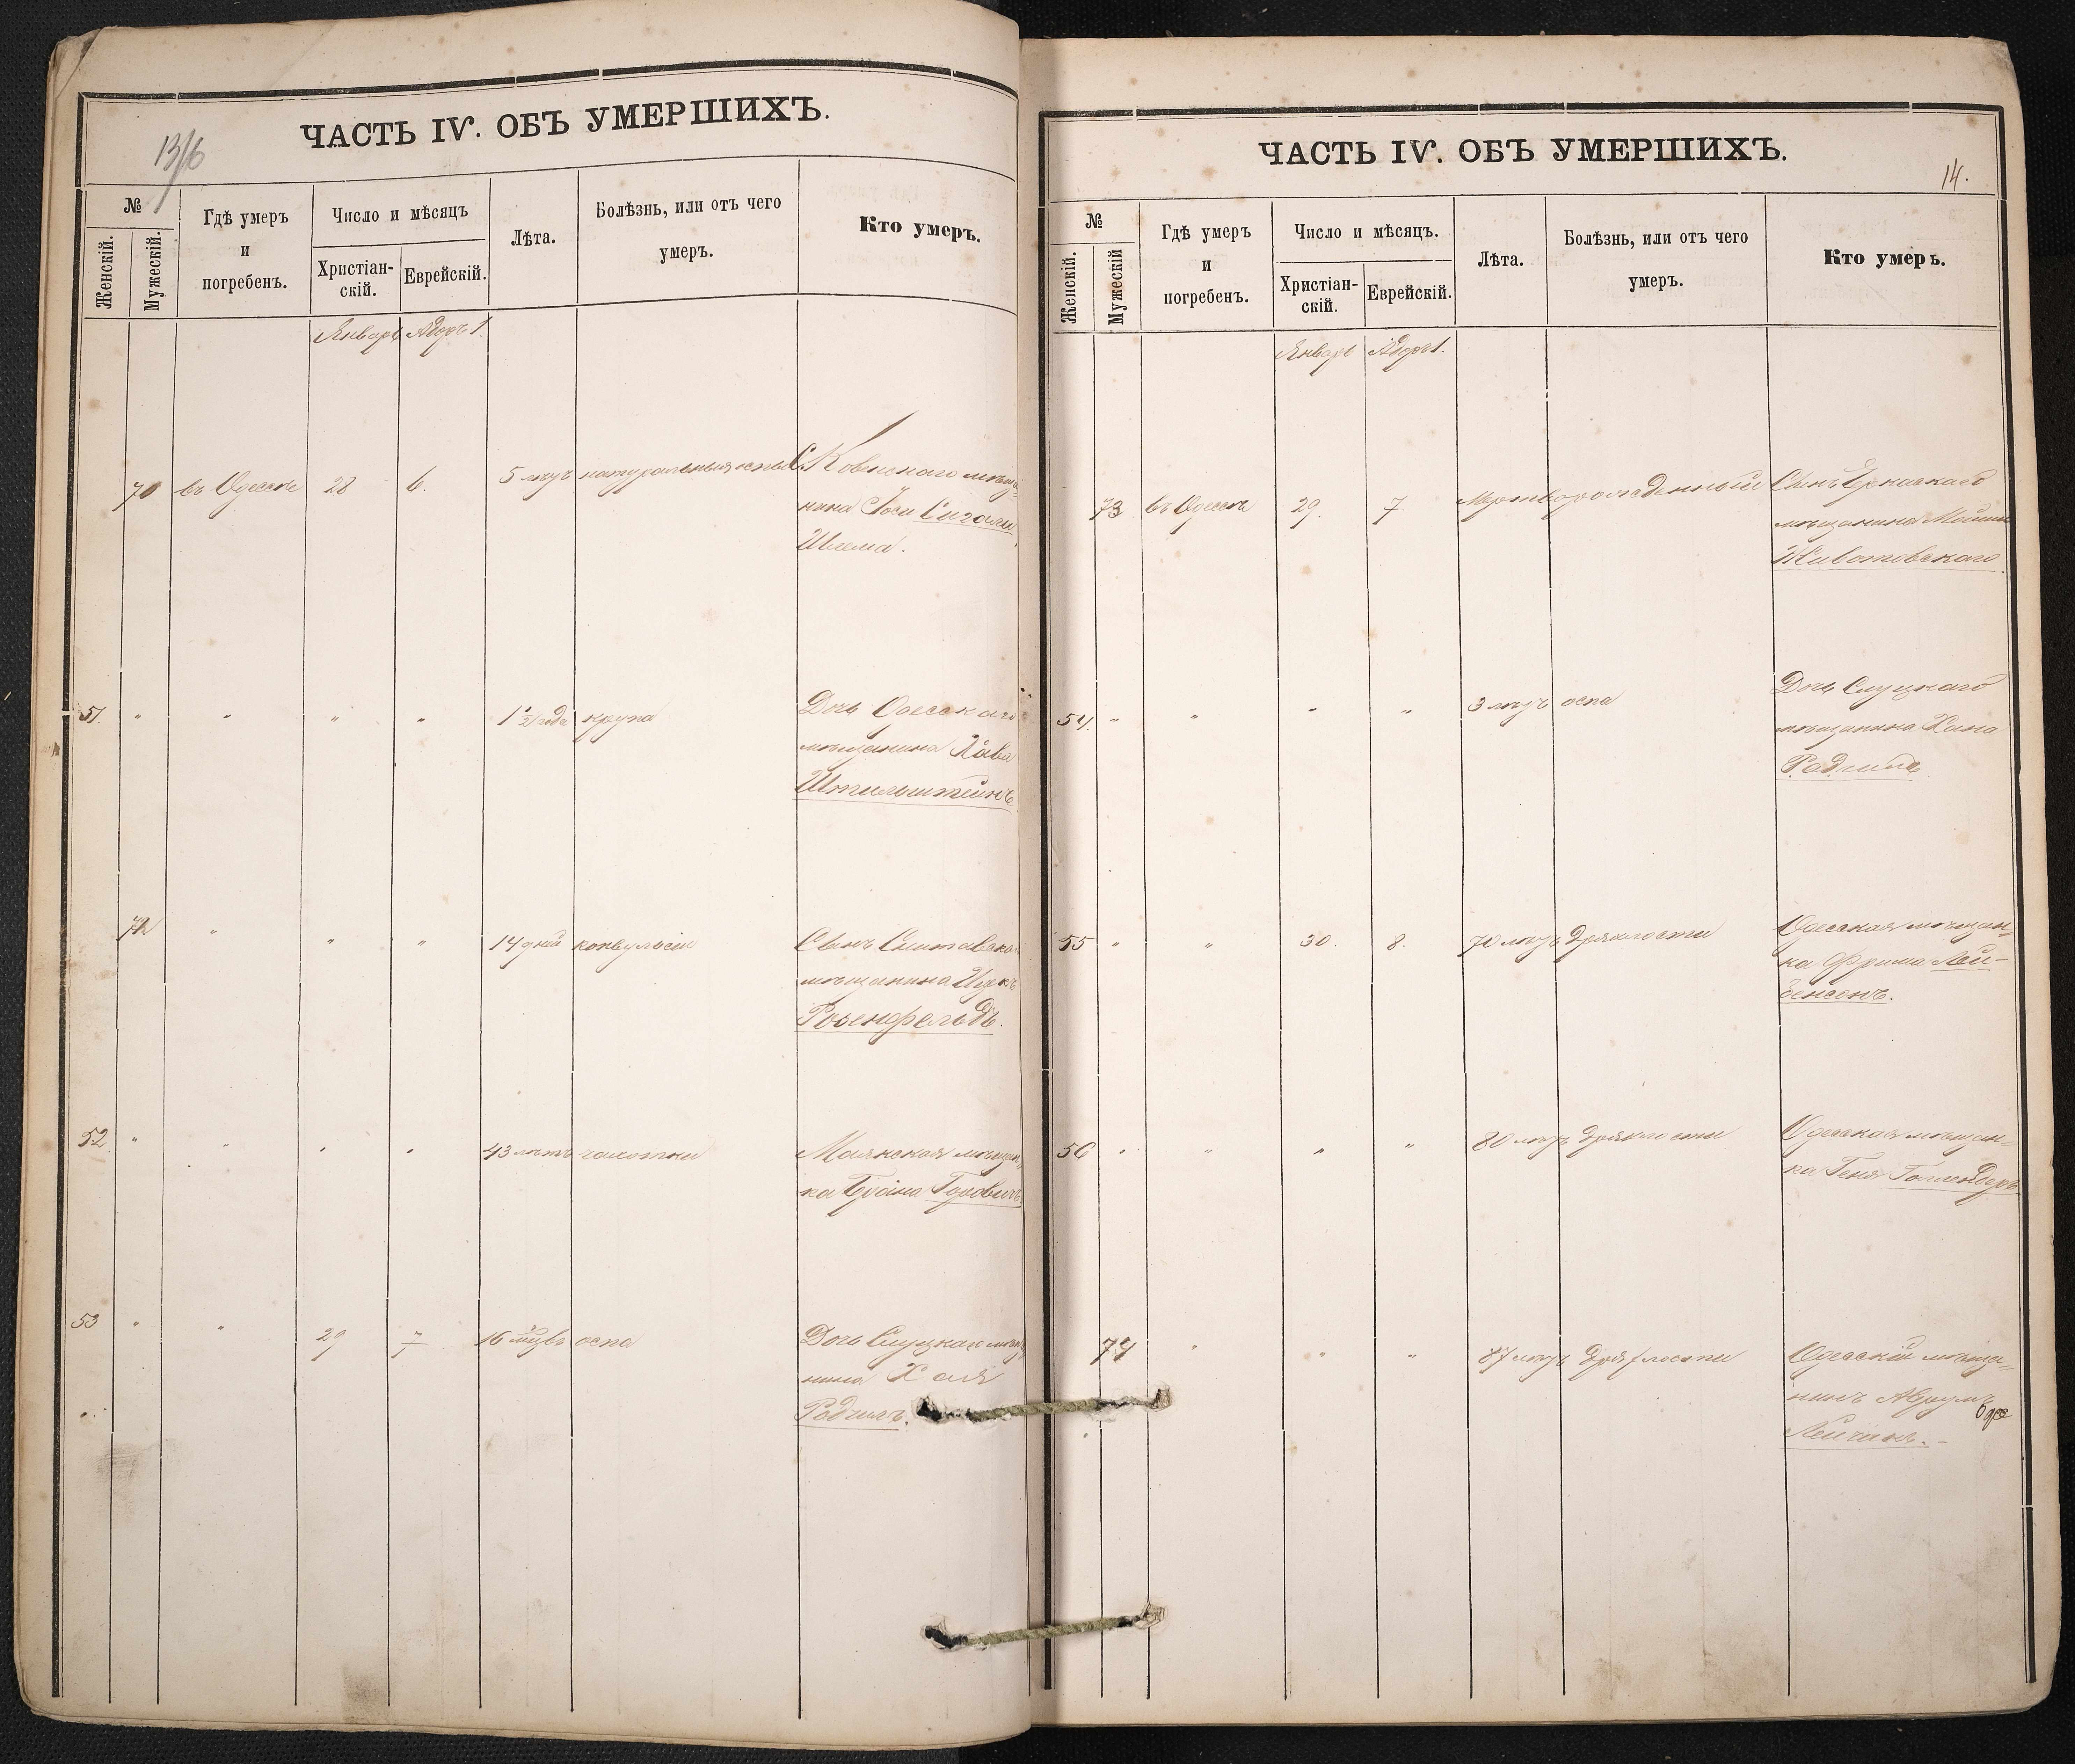 ЧАСТЬ IV. ОБЪ УМЕРШИХЪ.
№
Женскій.
Мужескій.
Гдѣ умеръ
и
погребенъ.
Число и мѣсяцъ
Христіан-
скій.
Еврейскій.
Лѣта.
Болѣзнь, или отъ чего
умеръ.
Кто умеръ.
Январь Адоръ 1.
70 въ Одессѣ 28 6. 5 лѣтъ натуральныя оспы С. Ковенскаго мѣща-
нина
51. " " " " 1½ года крупа Дочь Одесскаго
мѣщанина Хава
Штильштейнъ
72 " " " 14 дней конвульсіи Сынъ
мѣщанина Ицкъ
Розенфельдъ.
52 " " " " 43 лѣтъ чахотки Маякская мѣщан-
ка Горовичъ.
53 " " 29 7 16 оспа Дочь Слуцкаго мѣща-
нина Хая
Радчилъ.
ЧАСТЬ IV. ОБЪ УМЕРШИХЪ.
14.
№
Женскій.
Мужескій
Гдѣ умеръ
и
погребенъ.
Число и мѣсяцъ.
Христіан-
скій.
Еврейскій.
Лѣта.
Болѣзнь, или отъ чего
умеръ.
Кто умеръ.
Январь Адоръ 1.
73 въ Одессѣ 29. 7 Мертворожденный Сынъ
мѣщанина
Животовскаго
54. " " " " 3 лѣтъ оспа Дочь Слуцкаго
мѣщанина Хана
Радчилъ
55 " " 30. 8. 70 лѣтъ дряхлости Одесская мѣщан-
ка Фрима Лей-
бензонъ.
56 " " " " 80 лѣтъ дряхлости Одесская мѣщан-
ка Геня Голлендеръ
74 " " " 87 лѣтъ дряхлости Одесскій мѣща-
нинъ Аврумъ
Лейчикъ.